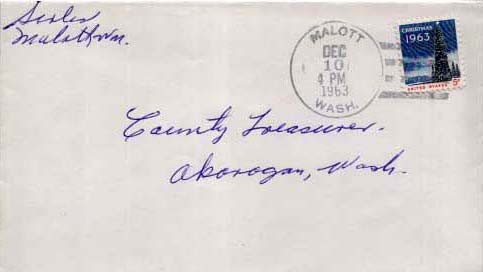 Malott Wn.
MALOTT
DEC
10
4 PM
1963
WASH.
CHRISTMAS
1963
UNITED STATES
5c
County Treasurer.
Okanogan, Wash.